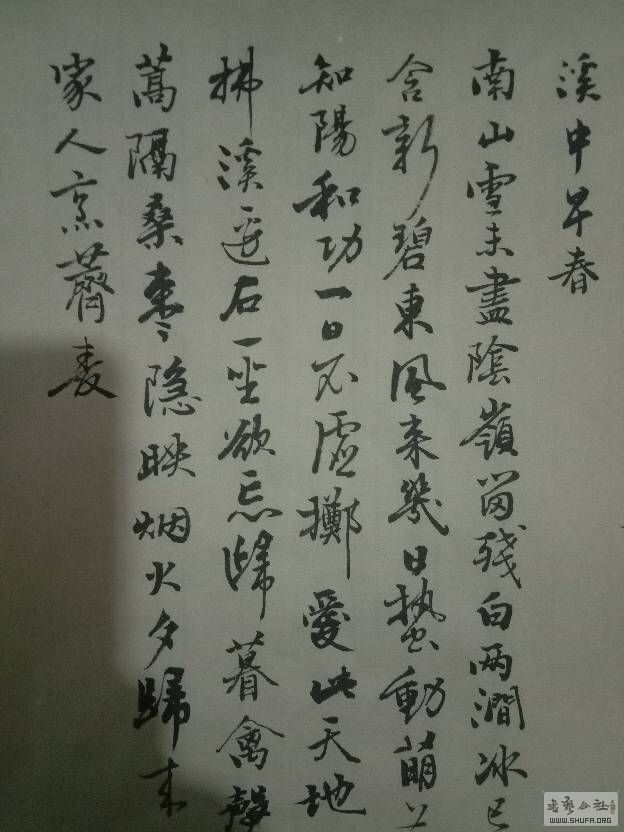 溪中早春
南山雪未盡陰嶺留殘白两澗冰已
含新碧東風来幾日蟄動萌
知陽和功一日不虛擲愛此天地
拂溪邊石一坐欲忘歸暮禽聲
蒿隔桑棗隐映烟火夕歸来
家人烹薺麦
书艺公社
WWW.SHUFA.ORG